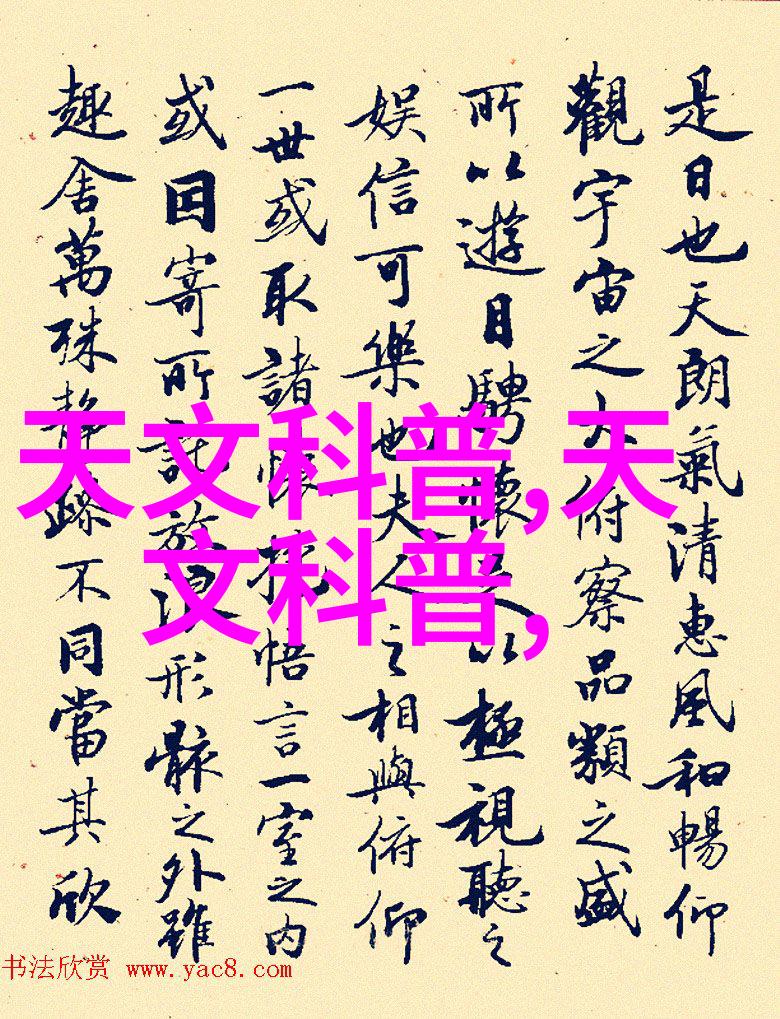 是日也天朗氣清惠風和暢仰
觀宇宙之大俯察品類之盛
所以遊目騁懷足以極視聽之
娱信可樂也夫人之相與俯仰
一世或取諸懷抱悟言一室之内
或因寄所託放浪形骸之外雖
趣舍萬殊静躁不同當其欣
天文科普,天
文科普,
书法欣赏 www.yac8.com